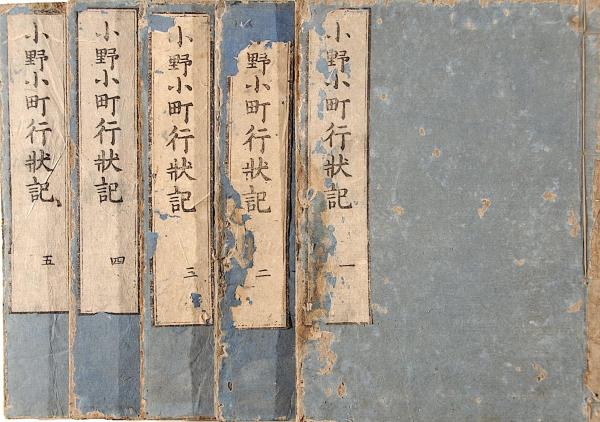 小野小町行状記 一
野小町行状記 二
小野小町行状記 三
小野小町行状記 四
小野小町行状記 五